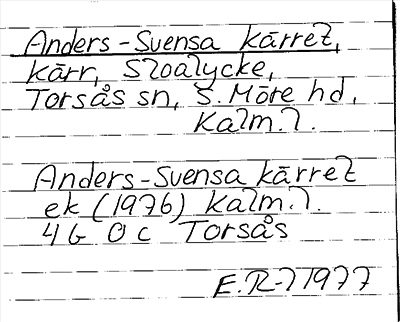 Anders-Svensa kärret,
kärr, Sloalycke,
Torsås sn, S. Möre hd,
Kalm. l.
Anders-Svensa kärret
ek (1976) Kalm. l.
4G 0c Torsås
E.R-l 1977